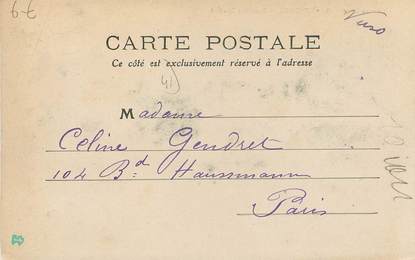 67
CARTE POSTALE
Ce côté est exclusivement réservé à l'adresse
41
Madame
Celine Gendret
104 Bd Haussmann
Paris